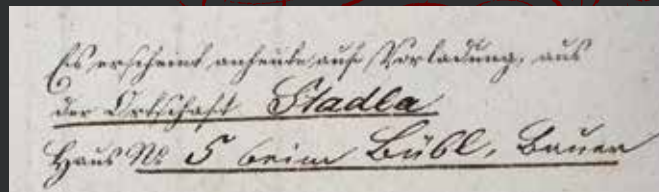 Es erscheint anheute auf Vorladung, aus
der Ortschaft Stadla
Haus No 5 beim Bübl, Bauer